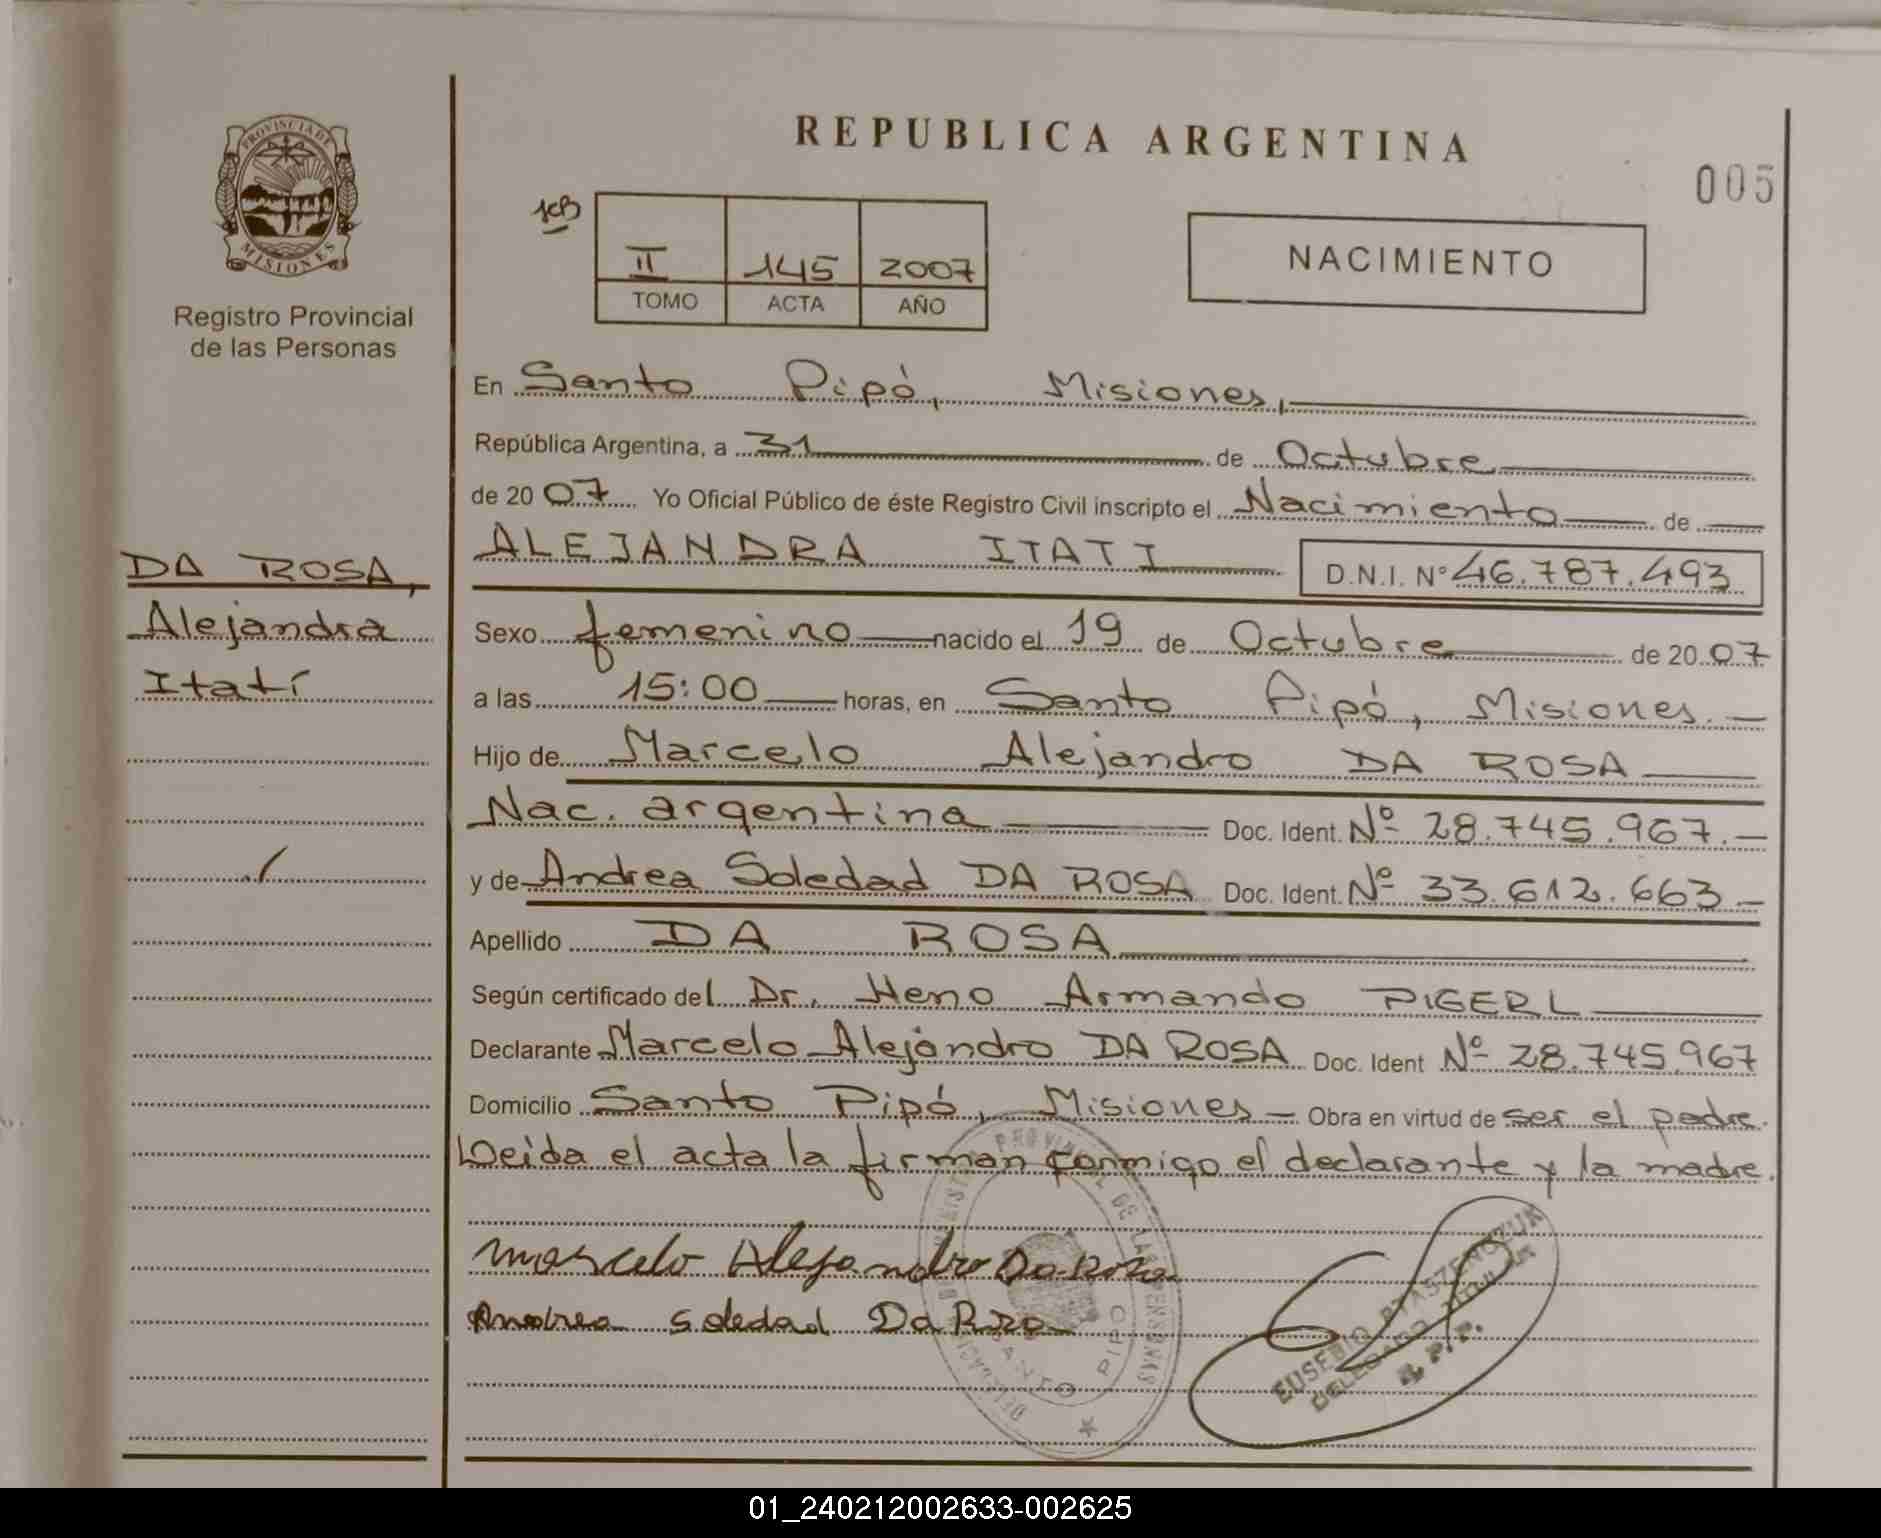 REPUBLICA ARGENTINA
005
PROVINCIA DE
MISIONES
Registro Provincial
de las Personas
II 145 2007
TOMO ACTA AÑO
NACIMIENTO
En Santo Pipó, Misiones,
República Argentina, a 31 de Octubre
de 2007 Yo Oficial Público de éste Registro Civil inscripto el Nacimiento de
ALEJANDRA ITATI D.N.I. Nº 46.787.493
DA ROSA,
Alejandra
Itatí
Sexo femenino nacido el 19 de Octubre de 2007
a las 15:00 horas, en Santo Pipó, Misiones.
Hijo de Marcelo Alejandro DA ROSA
Nac. argentina Doc. Ident. Nº 28.745.967.
y de Andrea Soledad DA ROSA Doc. Ident. Nº 33.612.663
Apellido DA ROSA
Según certificado del Dr. Heno Armando PIGERL
Declarante Marcelo Alejandro DA ROSA Doc. Ident Nº 28.745.967
Domicilio Santo Pipó, Misiones Obra en virtud de ser el padre.
Leída el acta la firman conmigo el declarante y la madre.
Marcelo Alejandro Da Rosa
Andrea Soledad Da Rosa
SANTO PIPO
EUSEBIO PTASZENCZUK
DELEGADO TITULAR
R.P.P.
01_240212002633-002625